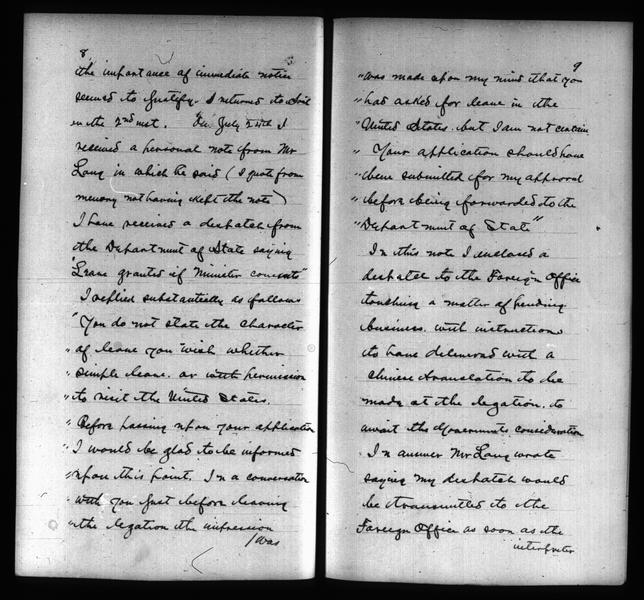 8
the importance of immediate notice
seemed to justify. I returned to
in the 2nd inst. On July 24th I
received a personal note from Mr
Long in which he said (I quote from
memory not having kept the note)
I have received a despatch from
the Department of State saying
"Leave granted if Minister consents"
I replied substantially as follows
"You do not state the character
" of leave you wish whether
" simple leave or with permission
" to visit the United States.
" Before passing upon your application
" I would be glad to be informed
" upon this point. In a conversation
" with you just before leaving
" the legation the impression
/was
9
"was made upon my mind that you
"had asked for leave in the
"United States, but I am not certain
" Your application should have
"been submitted for my approval
"before being forwarded to the
"Department of State"
In this note I enclosed a
despatch to the Foreign Office
touching a matter of pending
business, with instructions
to have delivered with a
Chinese translation to be
made at the legation, to
await the Governments consideration
In answer Mr Long wrote
saying my despatch would
be transmitted to the
Foreign Office as soon as the
interpreter